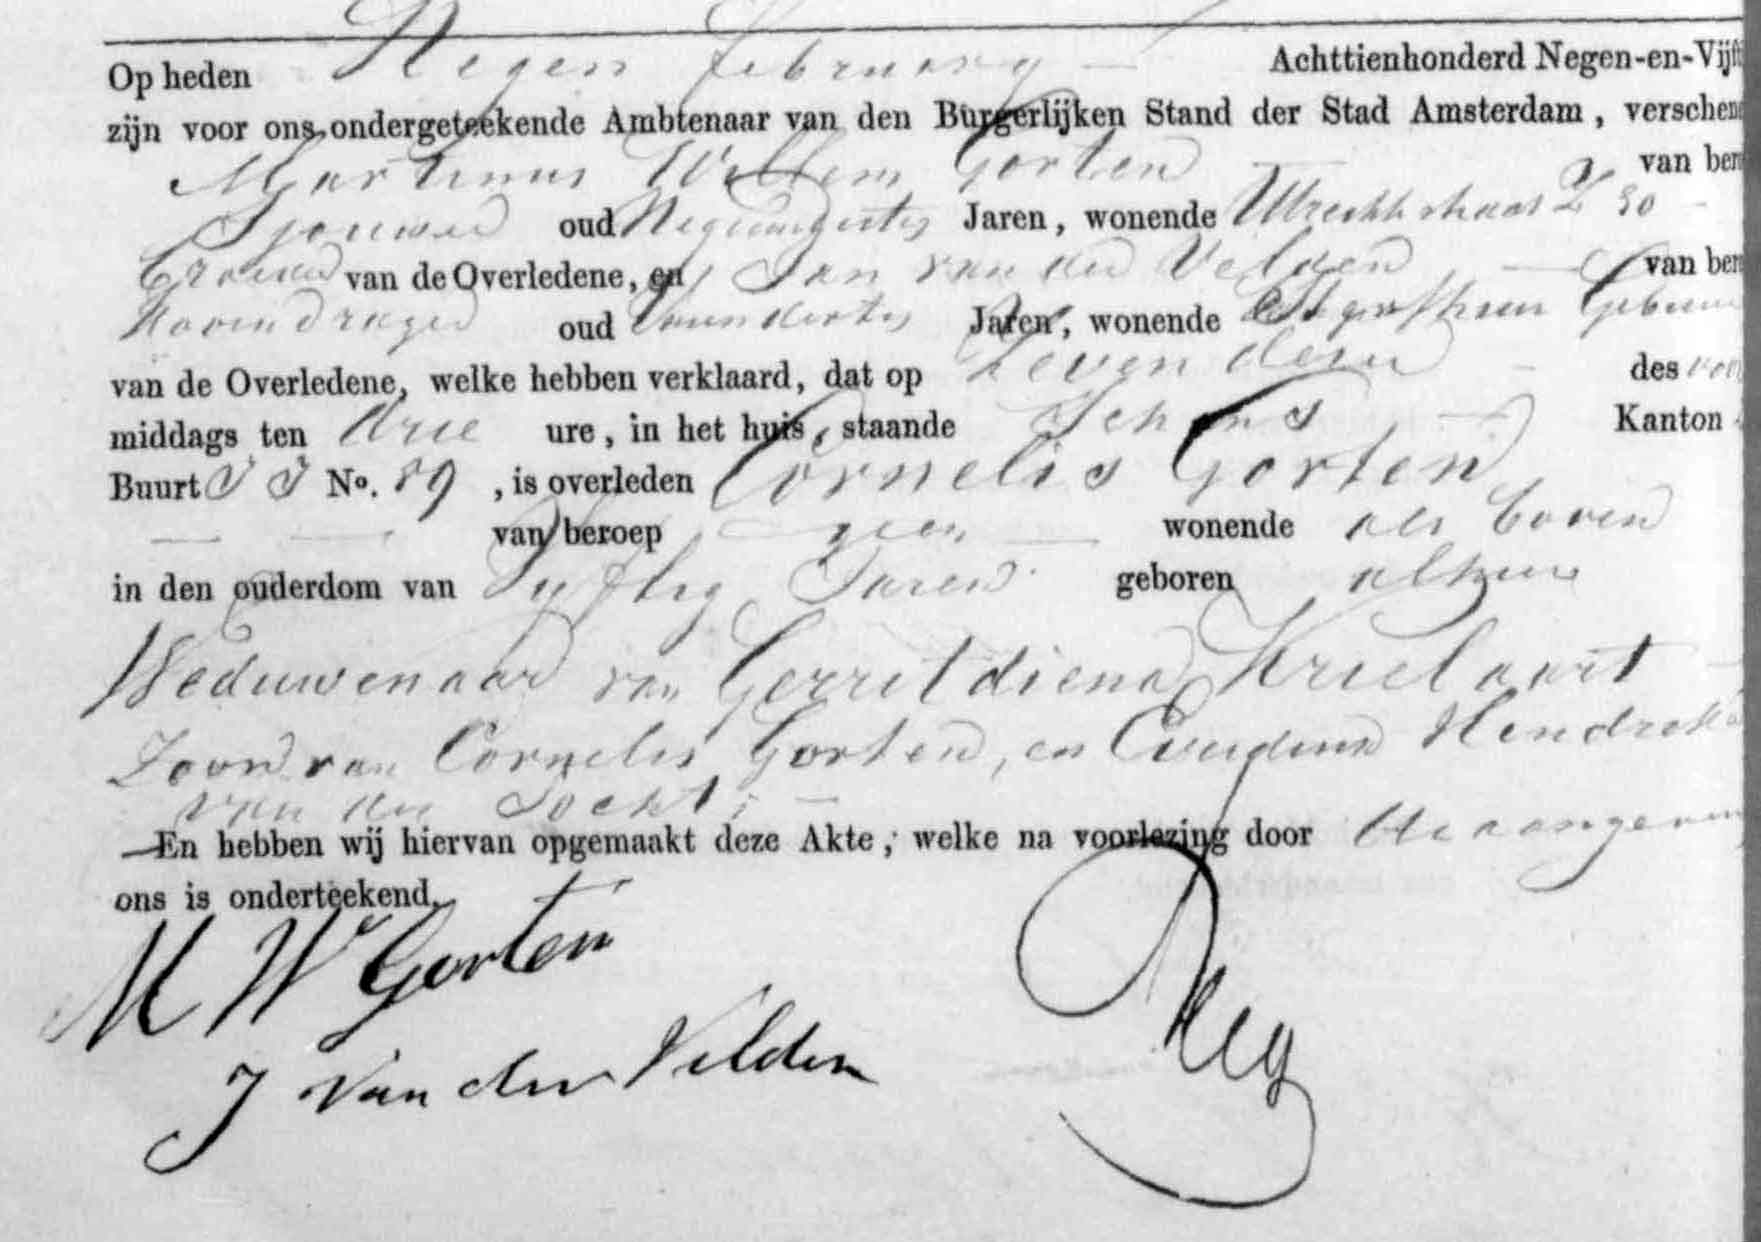 Op heden Negen February Achttienhonderd Negen-en-Vijf
zijn voor ons ondergeteekende Ambtenaar van den Burgerlijken Stand der Stad Amsterdam, verschen
Martinus Willem Gorten van ber
Sjouwer oud Negenendertig Jaren, wonende Utrechtschestraat Z 30
Broeder van de Overledene, en Jan van der Velden van ber
Korendrager oud Jaren, wonende Gebuur
van de Overledene, welke hebben verklaard, dat op Zeven dezer des voor
middags ten drie ure, in het huis, staande Schans Kanton
Buurt J J No. 89, is overleden Cornelis Gorten
van beroep geen wonende als boven
in den ouderdom van Vyftig Jaren geboren alhier
Weduwenaar van Gerritdiena Krielaart
Zoon van Cornelis Gorten, en Hendrika
van der Jocht;
En hebben wij hiervan opgemaakt deze Akte, welke na voorlezing door de aangevers
ons is onderteekend.
M W Gorten
J van der Velden